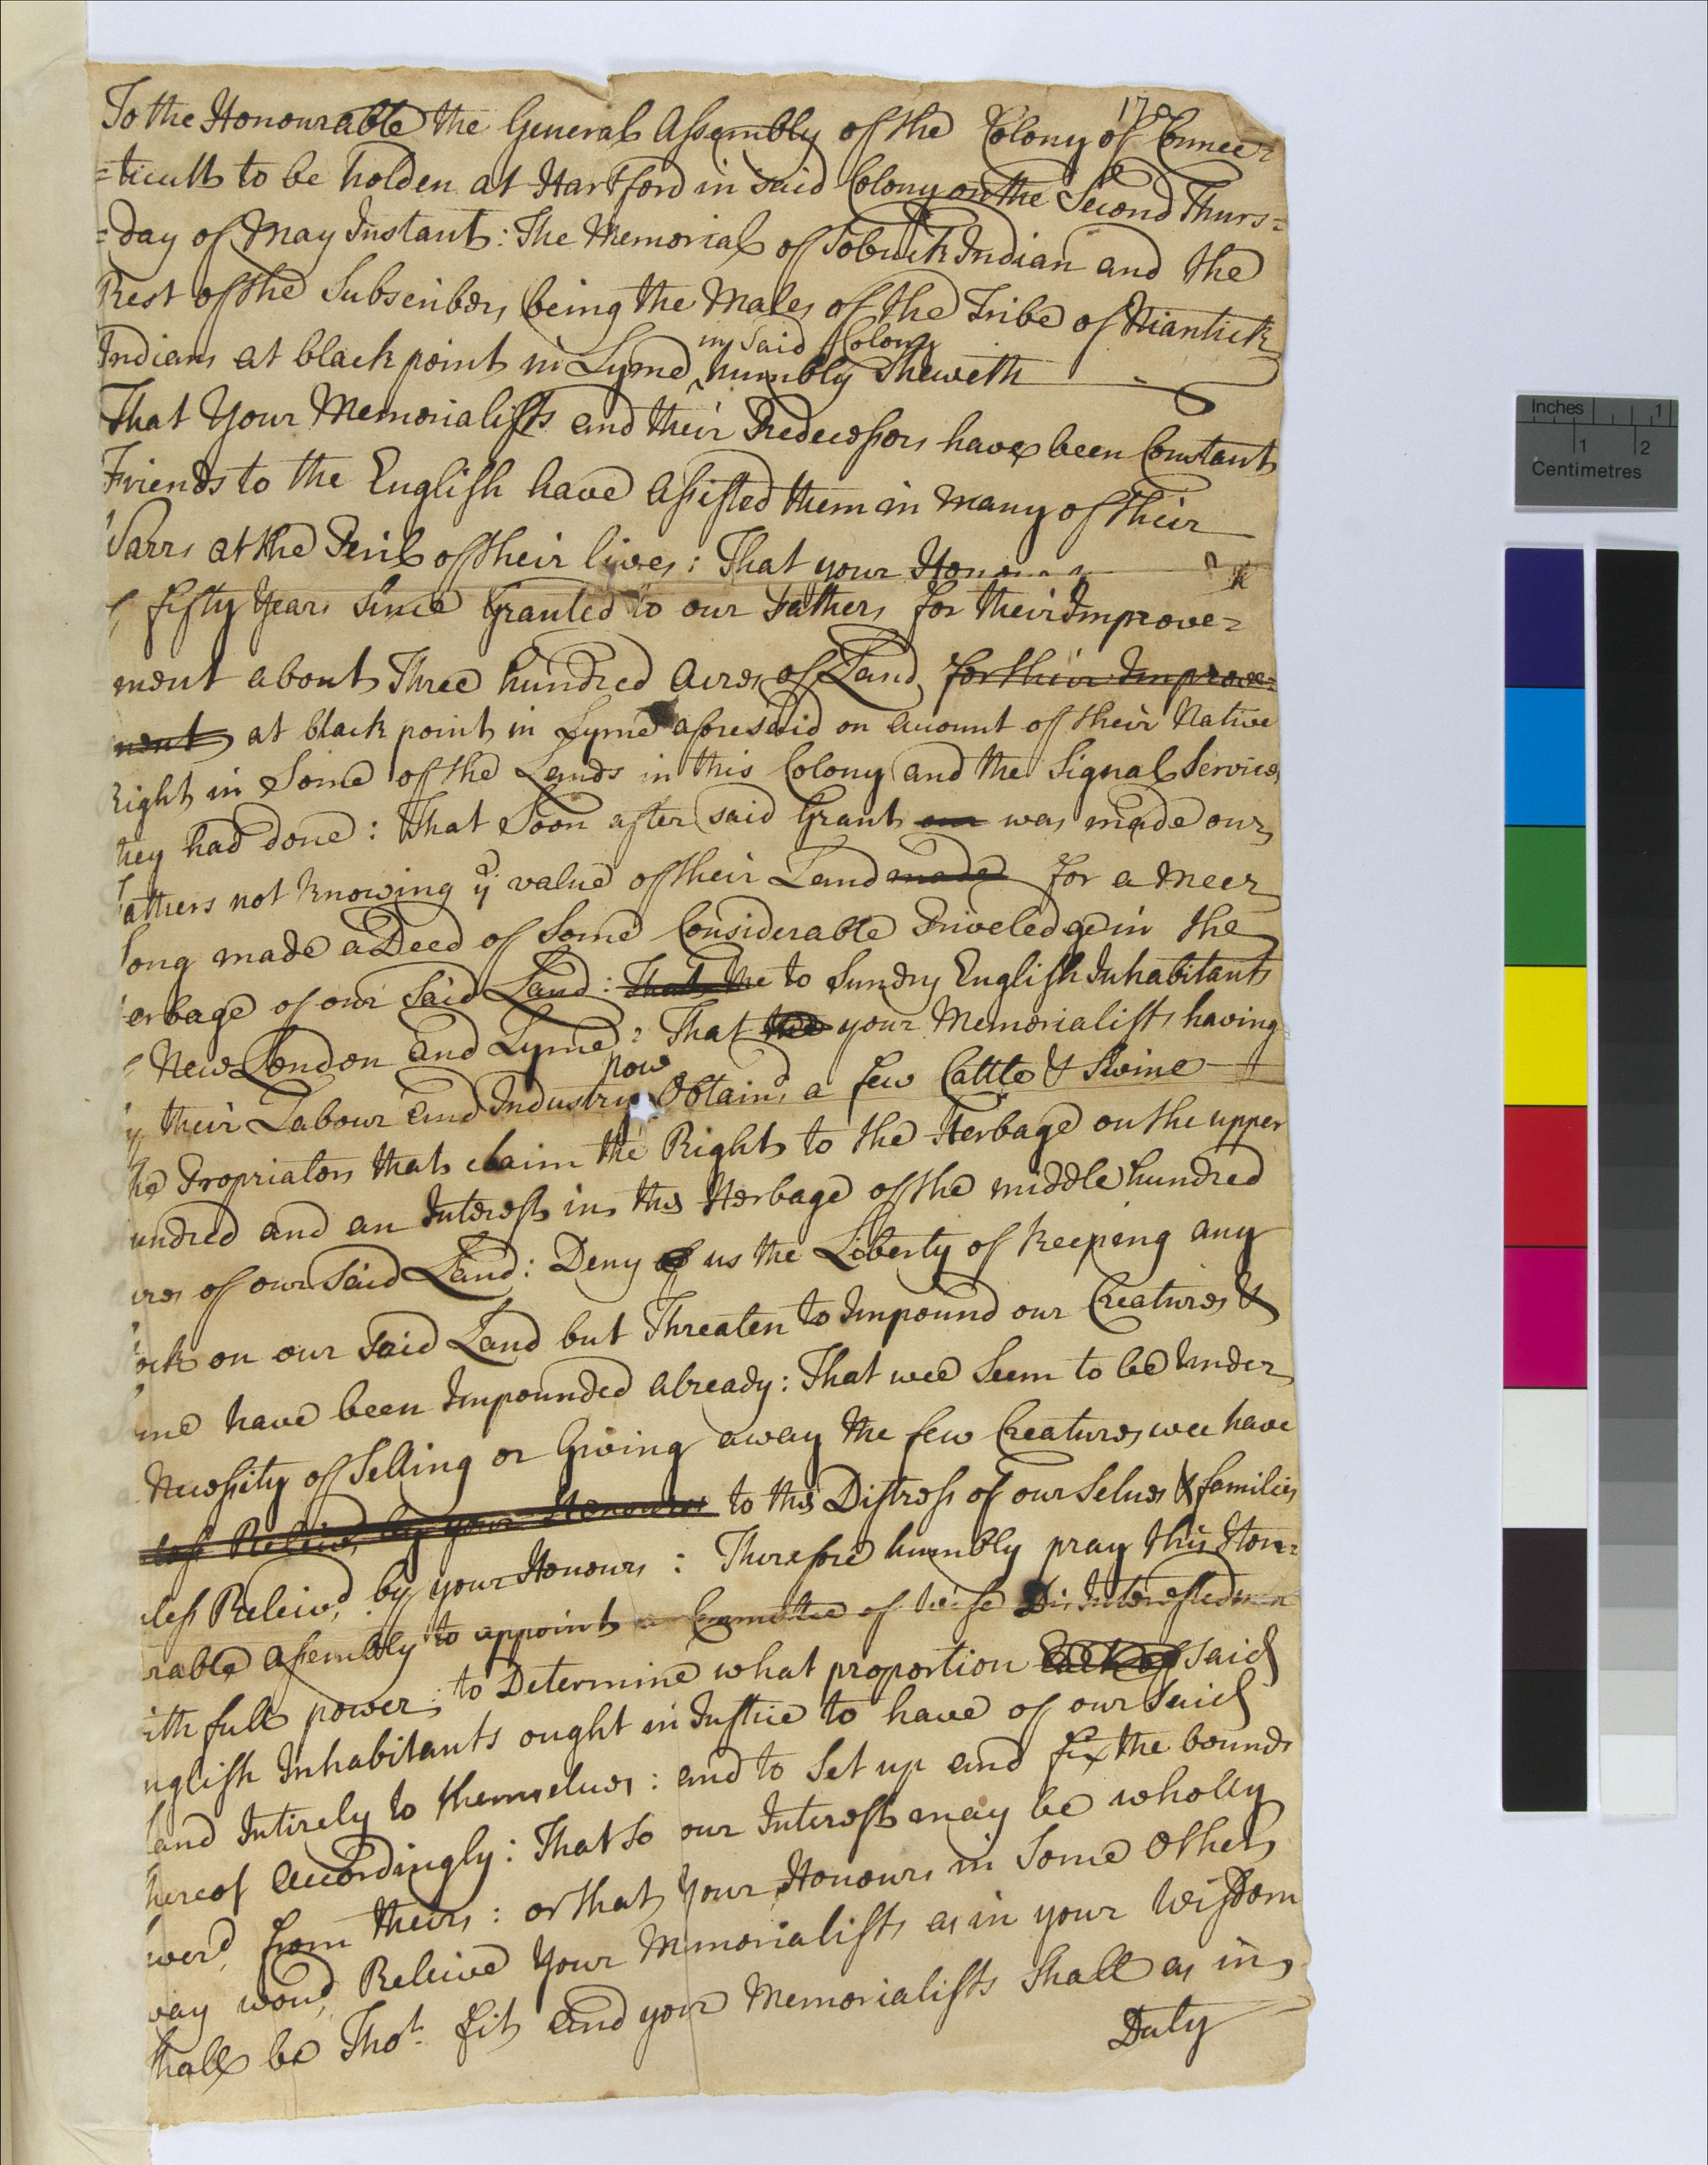 172
To the Honourable the General Assembly of the Colony of Connec=
=ticutt to be holden at Hartford in said Colony on the Second Thurs=
=day of May Instant: The Memorial of Tobuck Indian and the
Rest of the Subscribers being the Males of the Tribe of Niantick
in said Colony
Indians at black point in Lyme ‸ humbly Sheweth
That Your Memorialists and their Predecessors have been Constant
Friends to the English have assisted them in many of their
Warrs at the Peril of their lives: That your
fifty Years Since Granted to our Fathers for their Improve=
ment about Three hundred acres of Land, for their Improve=
ment at black point in Lyme aforesaid on account of their Native
Right in Some of the Lands in this Colony and the Signal Services
they had done: That Soon after said Grant our was made our
Fathers not knowing ye value of their Land made for a meer
Song made a Deed of Some Considerable Priveledge in the
erbage of our Said Land: That the to Sundry English Inhabitants
of New London and Lyme: That your Memorialists having
now
by their Labour and Industry Obtaind a few Cattle & Swine
the Propriators that claim the Right to the Herbage on the upper
undred and an Interest in the Herbage of the middle hundred
cres of our Said Land: Deny of us the Liberty of keeping any
ock on our said Land but Threaten to Impound our Creatures &
me have been Impounded already: That wee Seem to be under
a Necessity of Selling or Giving away the few Creatures wee have
less Releivd by your Honours to the Distress of our Selves & families
less Releivd by your Honours: Therefore humbly pray this Hon=
rable assembly to appoint a Committee of wise Dis Interested men
ith full power to Determine what proportion Each of said
nglish Inhabitants ought in Justice to have of our said
Land Intirely to themselves: and to Set up and fix the bounds
hereof accordingly: That So our Interest may be wholly
verd from theirs: or that Your Honours in Some Other
way woud Releive Your Memorialists as in your Wisdom
shall be Thot fit and your Memorialists Shall as in
Duty
Inches 1
1 2
Centimetres